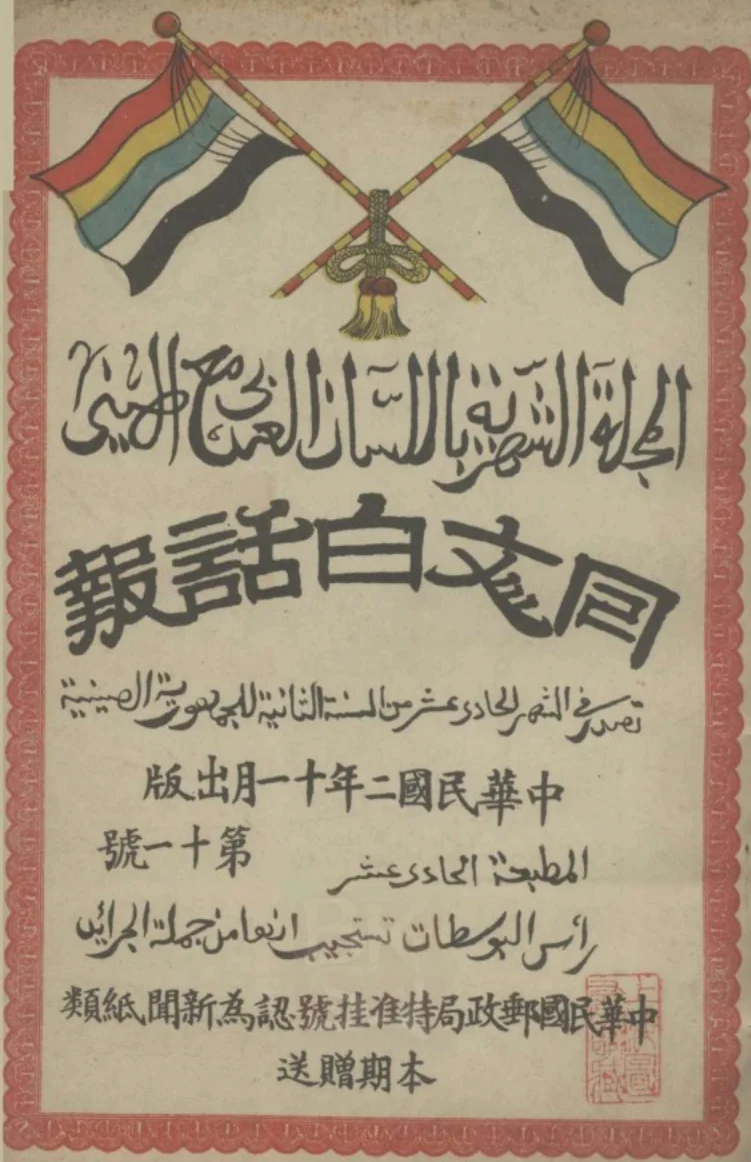 المجلة الشهرية باللسان العربى مع الصينى
回文白話報
تصدر فى الشهر الحادى عشر من السنة الثانية للجمهورية الصينية
中華民國二年十一月出版
第十一號
المطبعة الحادى عشر
رأس البوسطات تستجيب انها من جملة الجرائد
中華民國郵政局特准挂號認為新聞紙類
本期贈送